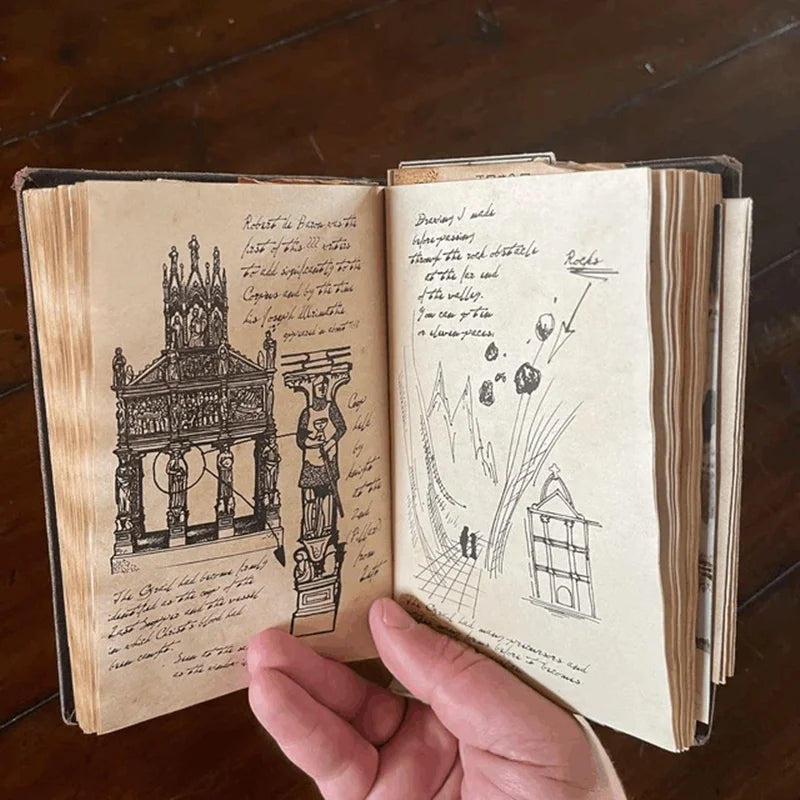 Robert de Baron was the
first of this ??? writers
to add significantly to the
Corpus and by the time
his Joseph
appeared in about
Cup
held
by
knight
at the
2nd
(Pillar)
from
left
The Grail had become firmly
identified as the cup of the
Last Supper and the vessel
in which Christ's blood had
been caught.
Seen to the
as the
Drawing I made
before passing
through the rock obstacle
at the far end
of the valley.
You can go ten
or eleven paces.
Rocks
or
The Grail had many precursors and
before it becomes